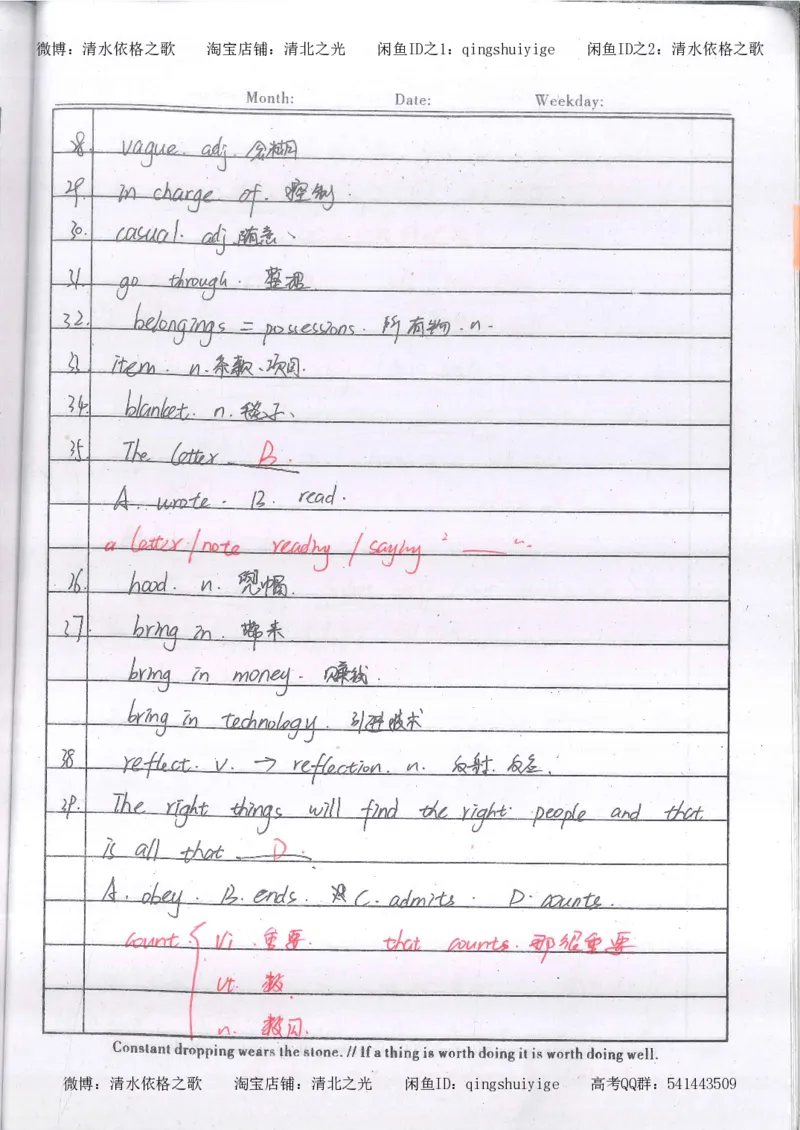 微博：清水依格之歌 淘宝店铺：清北之光 闲鱼ID之1：qingshuiyige 闲鱼ID之2：清水依格之歌
Month: Date: Weekday:
28. vague. adj. 含糊
29. in charge of. 控制
30. casual. adj. 随意、
31. go through. 整理.
32. belongings = possessions. 所有物. n.
33. item. n. 条款、项目.
34. blanket. n. 毯子、
35. The letter B.
A. wrote. B. read.
a letter/note reading / saying " ___ ".
36. hood. n. 兜帽.
37. bring in. 带来
bring in money. 赚钱.
bring in technology. 引进技术
38 reflect. v. → reflection. n. 反射. 反应.
39. The right things will find the right people and that
is all that D.
A. obey. B. ends. C. admits. D. counts.
count. { vi. 重要. that counts. 那很重要
vt. 数.
n. 数目.
Constant dropping wears the stone. // If a thing is worth doing it is worth doing well.
微博：清水依格之歌 淘宝店铺：清北之光 闲鱼ID：qingshuiyige 高考QQ群：541443509